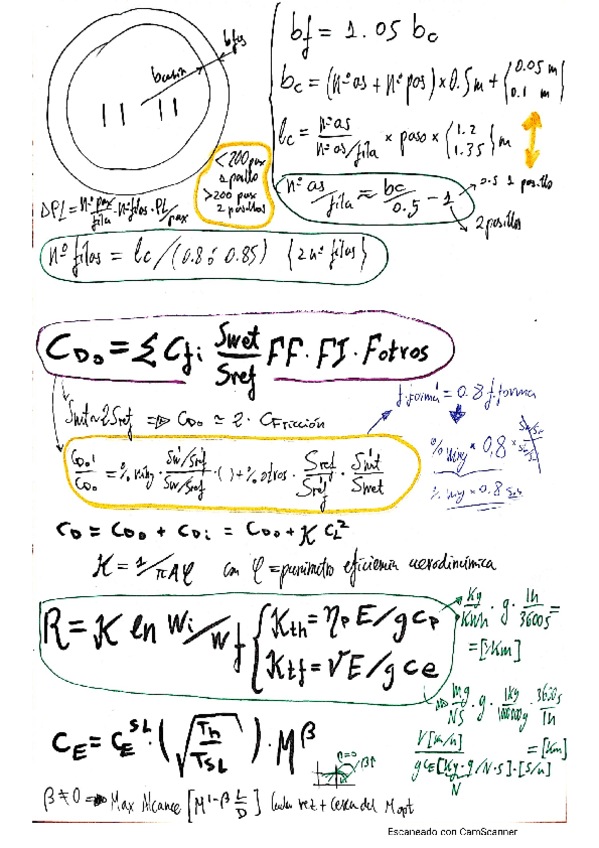 bfus
bcabin
bf = 1.05 bc
bc = (nº as + nº pas) × 0.5 m + { 0.05 m
0.1 m }
lc = nº as / nº as/fila × paso × { 1.2
1.35 } m
nº as/fila ≈ bc/0.5 - 1
0.5 1 pasillo
2 pasillos
< 200 pax
1 pasillo
> 200 pax
2 pasillos
ΔPL = nº pax/fila · nº filas · PL/pax
nº filas = lc/(0.8 ó 0.85) {2 nº filas}
CD0 = Σ Cfi Swet/Sref FF · FI · Fotros
Swet ≈ 2 Sref ⇒ CD0 ≈ 2 · Cfricción
f.forma' = 0.8 f.forma
CD0'/CD0 = % wing · Sw'/Sref' / Sw/Sref · ( ) + % otros · Sref/Sref' · Swet'/Swet
% wing · 0,8 ·
% wing × 0,8
CD = CD0 + CDi = CD0 + K CL²
K = 1/πAφ con φ = parámetro eficiencia aerodinámica
R = K ln Wi/Wf { Kth = ηp E/g cp
Ktf = V E/g ce
Kg/KWh · g · 1h/3600s =
= [1/Km]
mg/NS · g · 1kg/1000000g · 3600s/1h
V [Km/h] / g cE [Kg·g/N·s] · [s/h] = [Km]
N
CE = CE^SL · (√Th/TSL) · M^β
β=0
β↑
β ≠ 0 ⇒ Max Alcance [M^1-β L/D] cada vez + cerca del Mopt
Escaneado con CamScanner